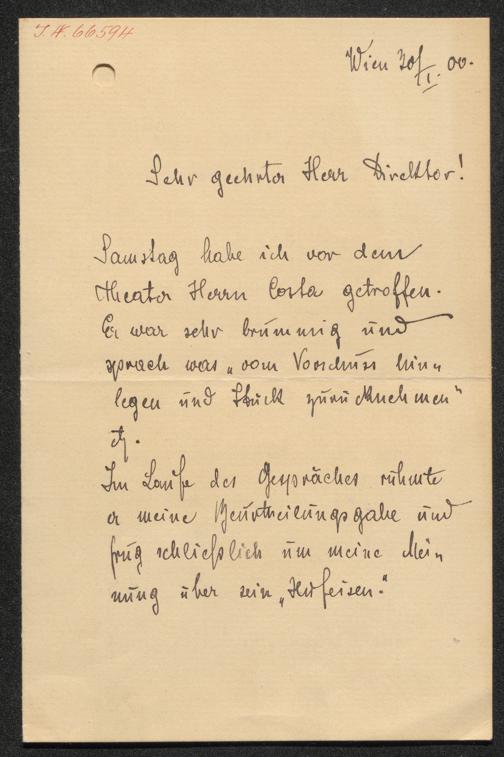 J.N. 66594
Wien 30/I. 00.
Sehr geehrter Herr Direktor!
Samstag habe ich vor dem
Theater Herrn Costa getroffen.
Er war sehr brummig und
sprach was „vom Vorschuss hin„
legen und Stück zurücknehmen“
etz.
Im Laufe des Gespräches rühmte
er meine Beurtheilungsgabe und
frug schließlich um meine Mei„
nung über sein „Hufeisen.“